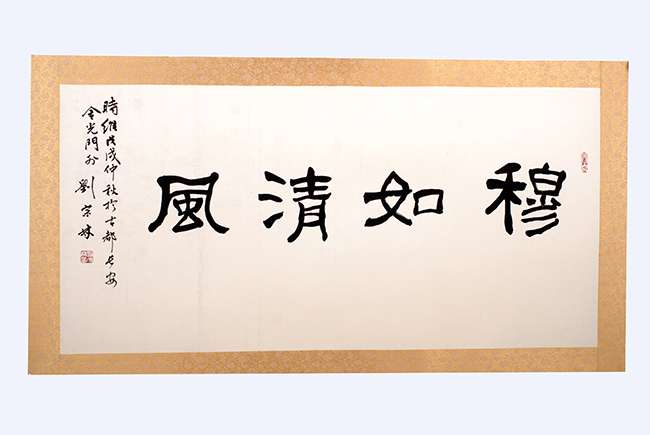 穆如清風
時維戊戌仲秋於古都長安
金光門外劉宗林